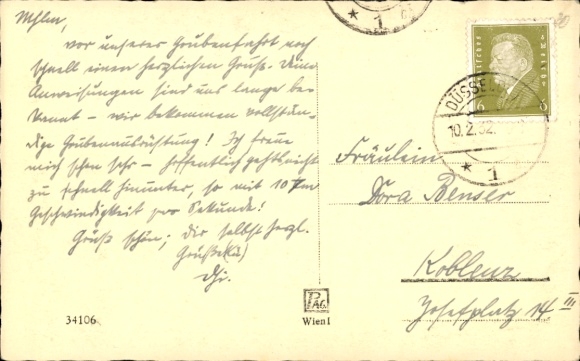 vor unserer Grubenfahrt noch
schnell einen herzlichen Gruß. Deine
Anweisungen sind uns lange be-
kannt – wir bekommen vollstän-
dige Grubenausrüstung! Ich freue
mich schon sehr – hoffentlich geht's nicht
zu schnell hinunter, so mit 10 m
Geschwindigkeit pro Sekunde!
Grüß schön; dir selbst herzl.
Grüße
DÜSSEL
10.2.32.
* 1
* 1
6 6
Fräulein
Dora Benser
Koblenz
Josefplatz 14 III
34106
PAG
Wien I